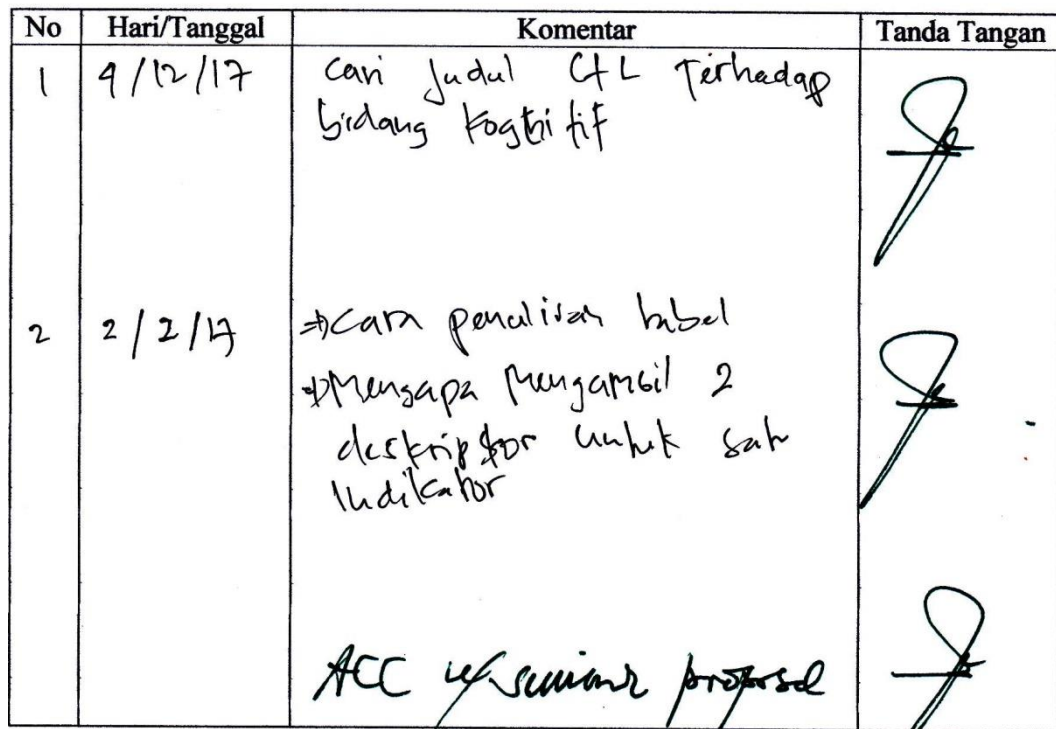 No Hari/Tanggal Komentar Tanda Tangan
1 4/12/17 Cari Judul CTL Terhadap
bidang Kognitif
2 2/2/17 ⇒ Cara penulisan tabel
⇒ Mengapa Mengambil 2
deskriptor untuk satu
Indikator
ACC u/ seminar proposal